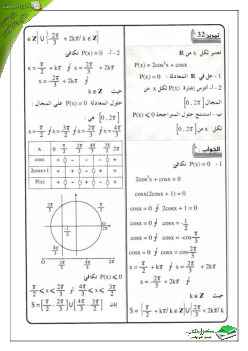 تمرين 32
نعتبر لكل x من R
P(x) = 2cos²x + cosx
1 - حل في R المعادلة : P(x) = 0
2 - أ - أدرس إشارة P(x) لكل x من
المجال [0 , 2π]
ب - استنتج حلول المتراجحة P(x) ⩽ 0
لكل x من [0 , 2π]
الجواب
1 - P(x) = 0 تكافئ
2cos²x + cosx = 0
cosx(2cosx + 1) = 0
cosx = 0 أو 2cosx + 1 = 0
cosx = 0 أو cosx = -1/2
cosx = 0 أو cosx = -cos π/3
cosx = 0 أو cosx = cos 2π/3
x = π/2 + kπ أو x = 2π/3 + 2kπ
حيث k ∈ Z
2 - أ - P(x) = 0 تكافئ
x = π/2 + kπ أو x = -2π/3 + 2kπ
أو x = 2π/3 + 2kπ
حيث k ∈ Z
حلول المعادلة P(x) = 0 على المجال
[0 , 2π] هي :
x = π/2 أو x = 3π/2 أو x = 2π/3 أو x = 4π/3
x 0 π/2 2π/3 4π/3 3π/2 2π
cosx + 0 - - - 0 +
2cosx+1 + + 0 - 0 + +
P(x) + 0 - 0 + 0 - 0 +
P(x) ⩽ 0 تكافئ
π/2 ⩽ x ⩽ 2π/3 أو 4π/3 ⩽ x ⩽ 3π/2
إذن S = [π/2 , 2π/3] U [4π/3 , 3π/2]